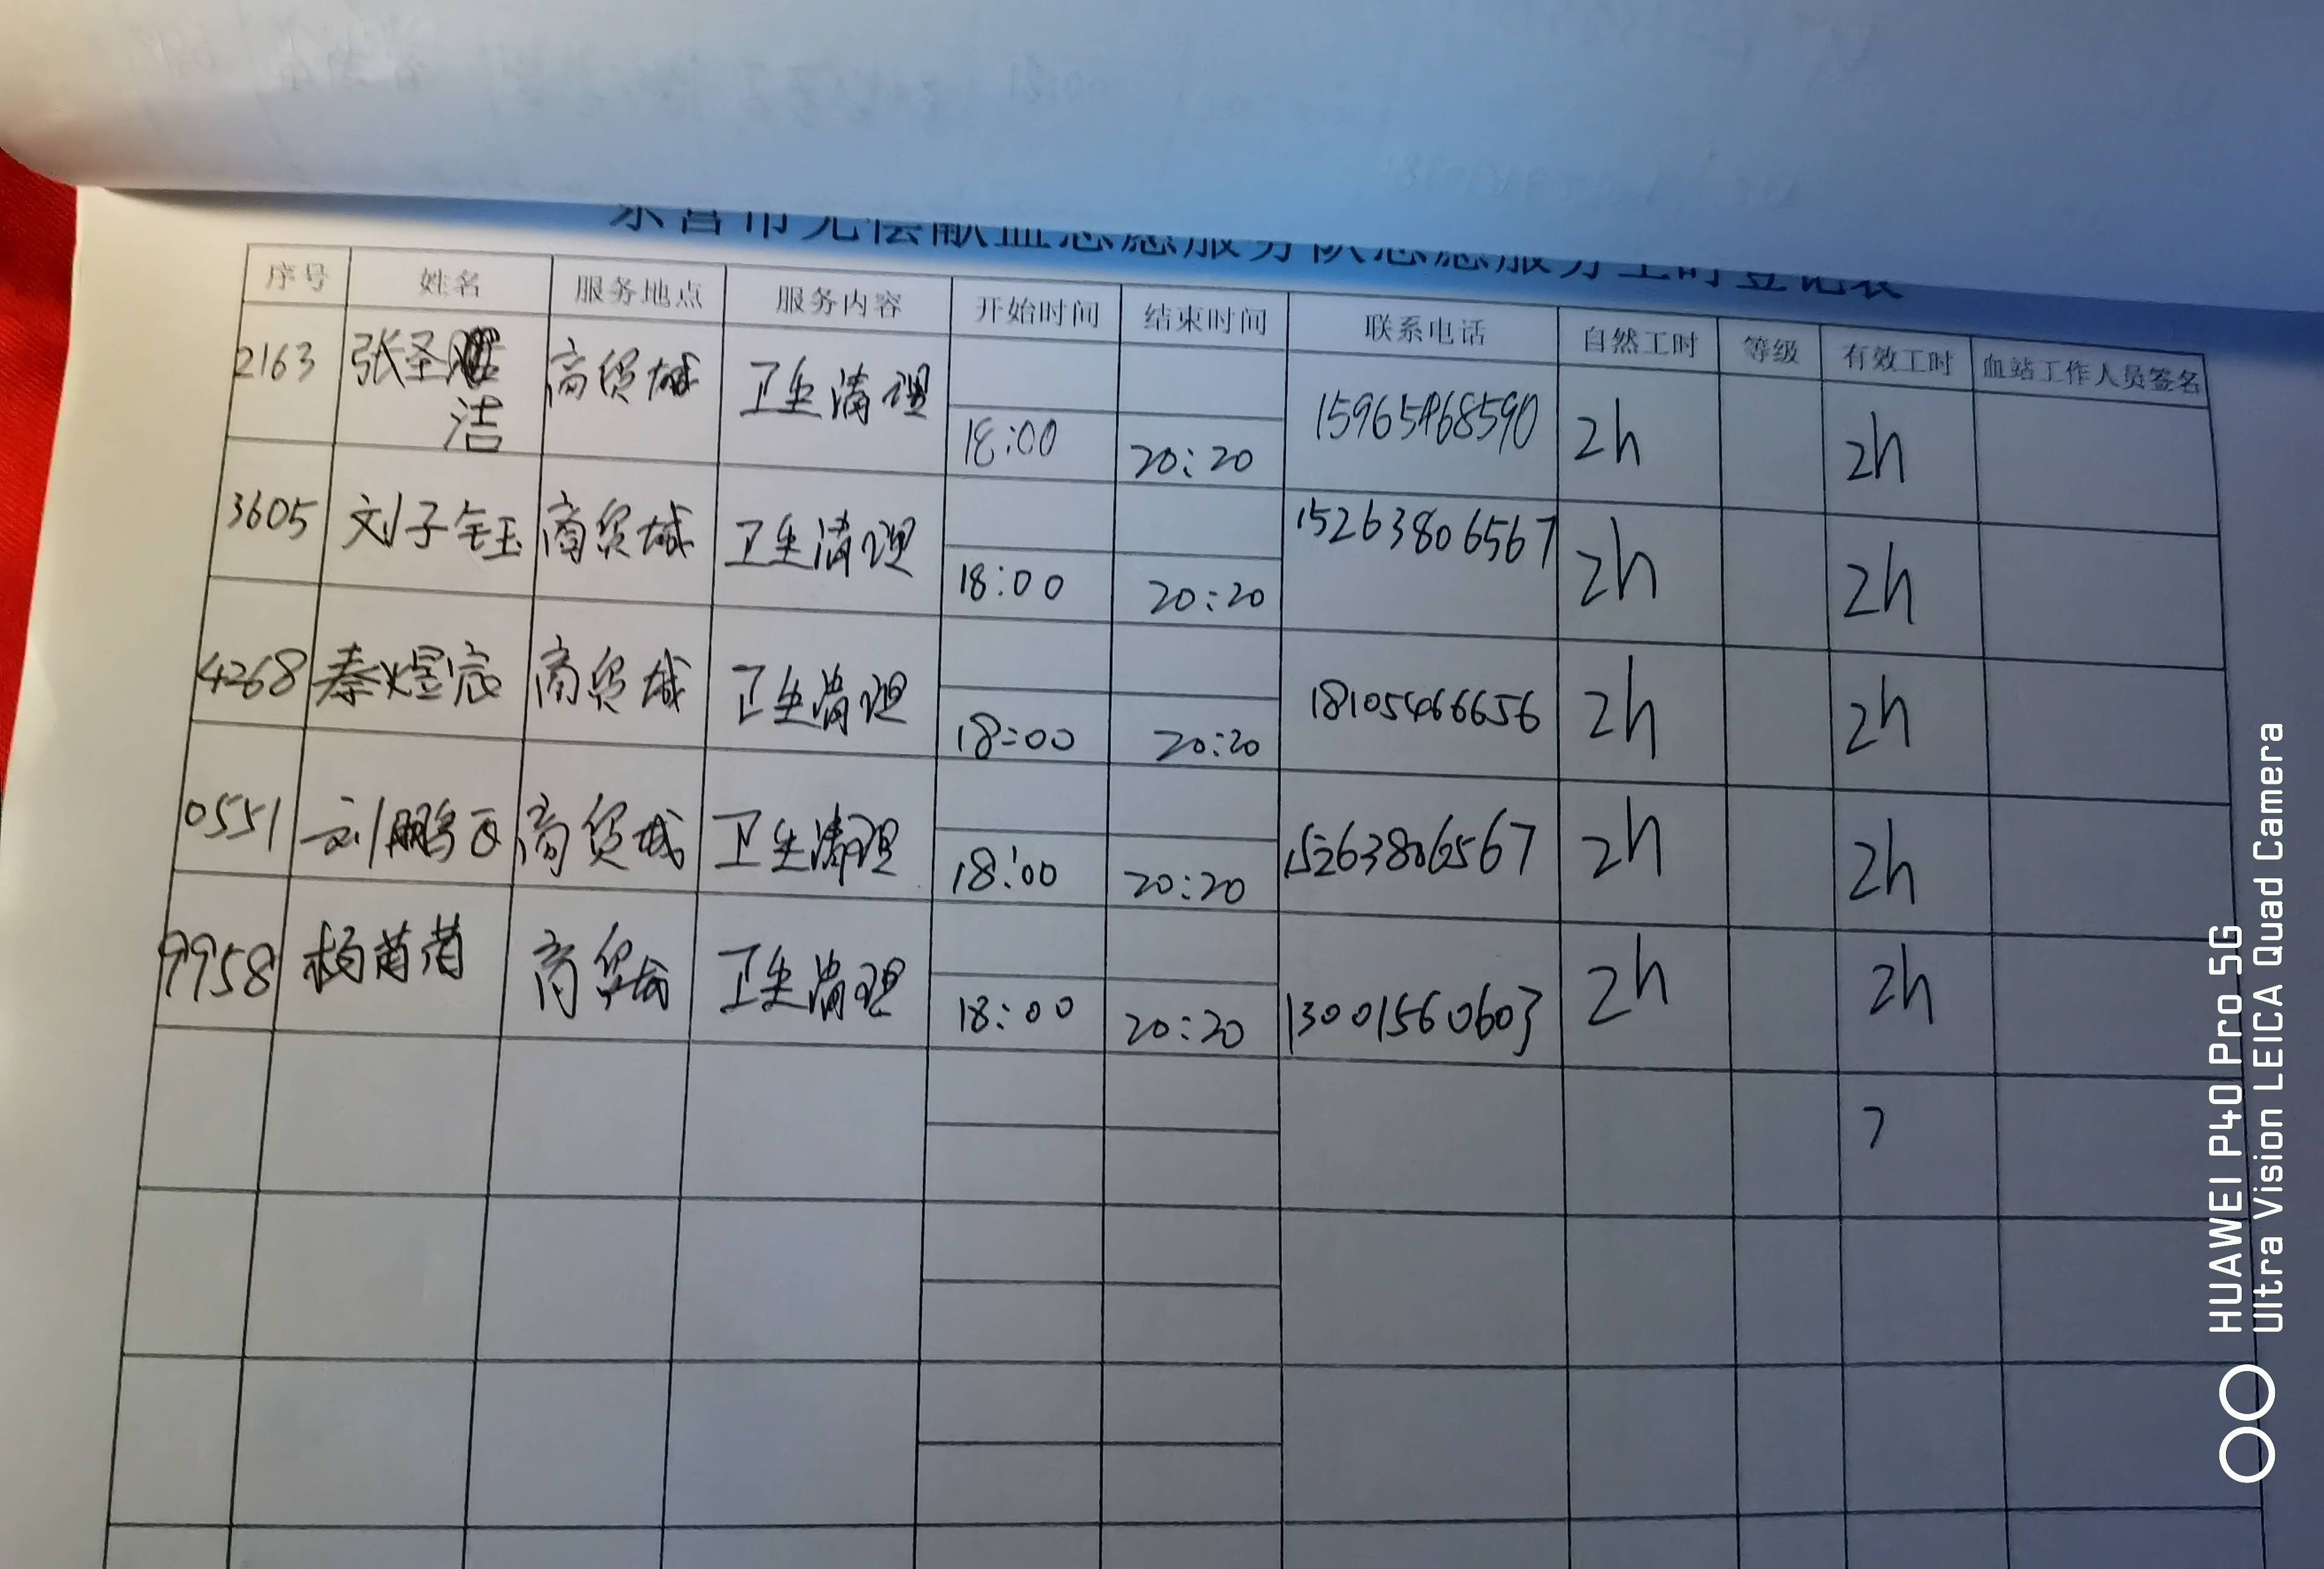 东营市无偿献血志愿服务队志愿服务工时登记表
序号 姓名 服务地点 服务内容 开始时间 结束时间 联系电话 自然工时 等级 有效工时 血站工作人员签名
2163 张圣洁 商贸城 卫生清理 18:00 20:20 15965468590 2h 2h
3605 刘子钰 商贸城 卫生清理 18:00 20:20 15263806567 2h 2h
4268 秦煜宸 商贸城 卫生清理 18:00 20:20 18105466656 2h 2h
0551 刘鹏 商贸城 卫生清理 18:00 20:20 15263806567 2h 2h
9958 杨茵茵 商贸城 卫生清理 18:00 20:20 13001560603 2h 2h
HUAWEI P40 Pro 5G
Ultra Vision LEICA Quad Camera